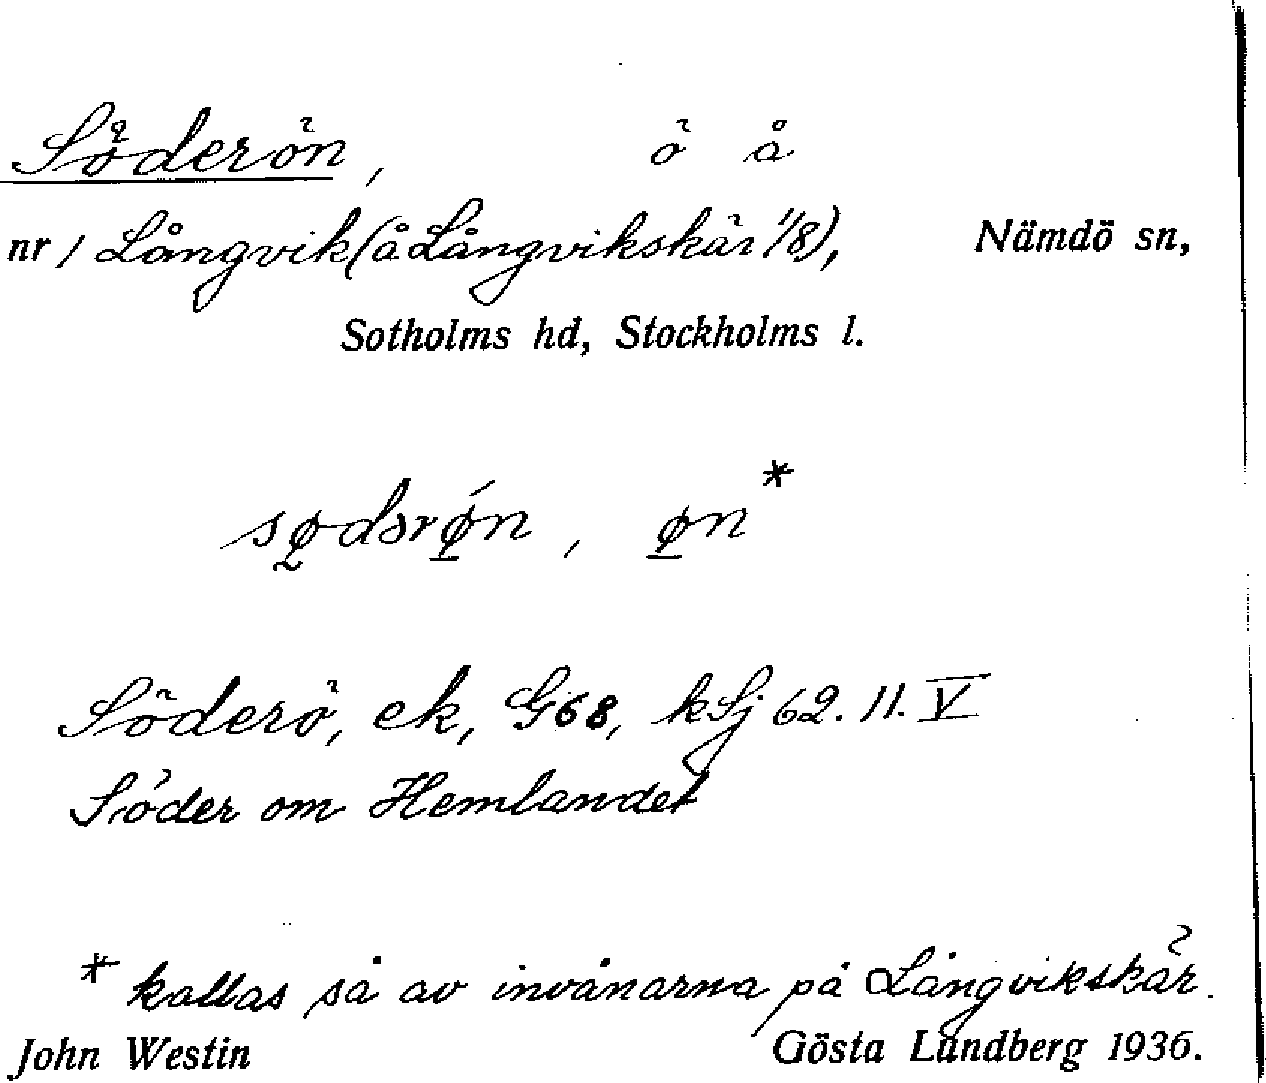 Söderön, ö å
nr 1 Långvik (å Långvikskär 1/8), Nämdö sn,
Sotholms hd, Stockholms l.
sødərǿn, øn*
Söderö, ek, G68, kSj 62.11.V
Söder om Hemlandet
* kallas så av invånarna på Långvikskär.
John Westin Gösta Lundberg 1936.